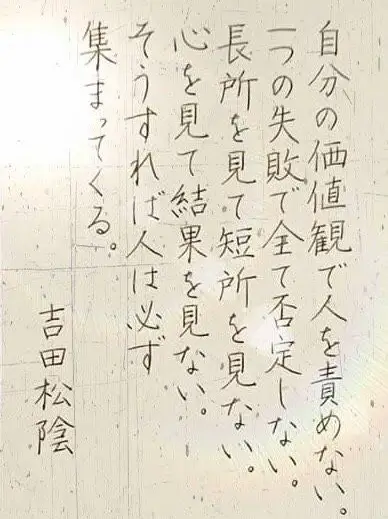 自分の価値観で人を責めない。
一つの失敗で全て否定しない。
長所を見て短所を見ない。
心を見て結果を見ない。
そうすれば人は必ず
集まってくる。
吉田松陰